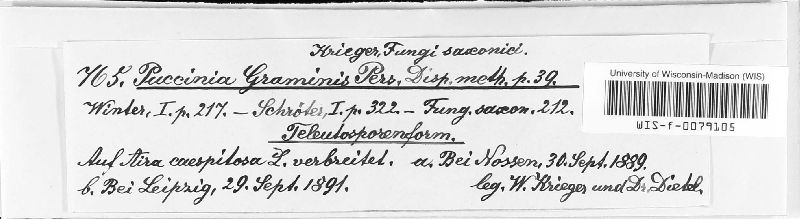 Krieger, Fungi saxonici.
765. Puccinia Graminis Pers. Disp. meth. p. 39.
Winter, I. p. 217. – Schröter, I. p. 322. – Fung. saxon. 212.
Teleutosporenform.
Auf Aira caespitosa L. verbreitet. a. Bei Nossen, 30. Sept. 1889.
b. Bei Leipzig, 29. Sept. 1891. leg. W. Krieger und Dr. Dietel.
University of Wisconsin-Madison (WIS)
WIS-f-0079105